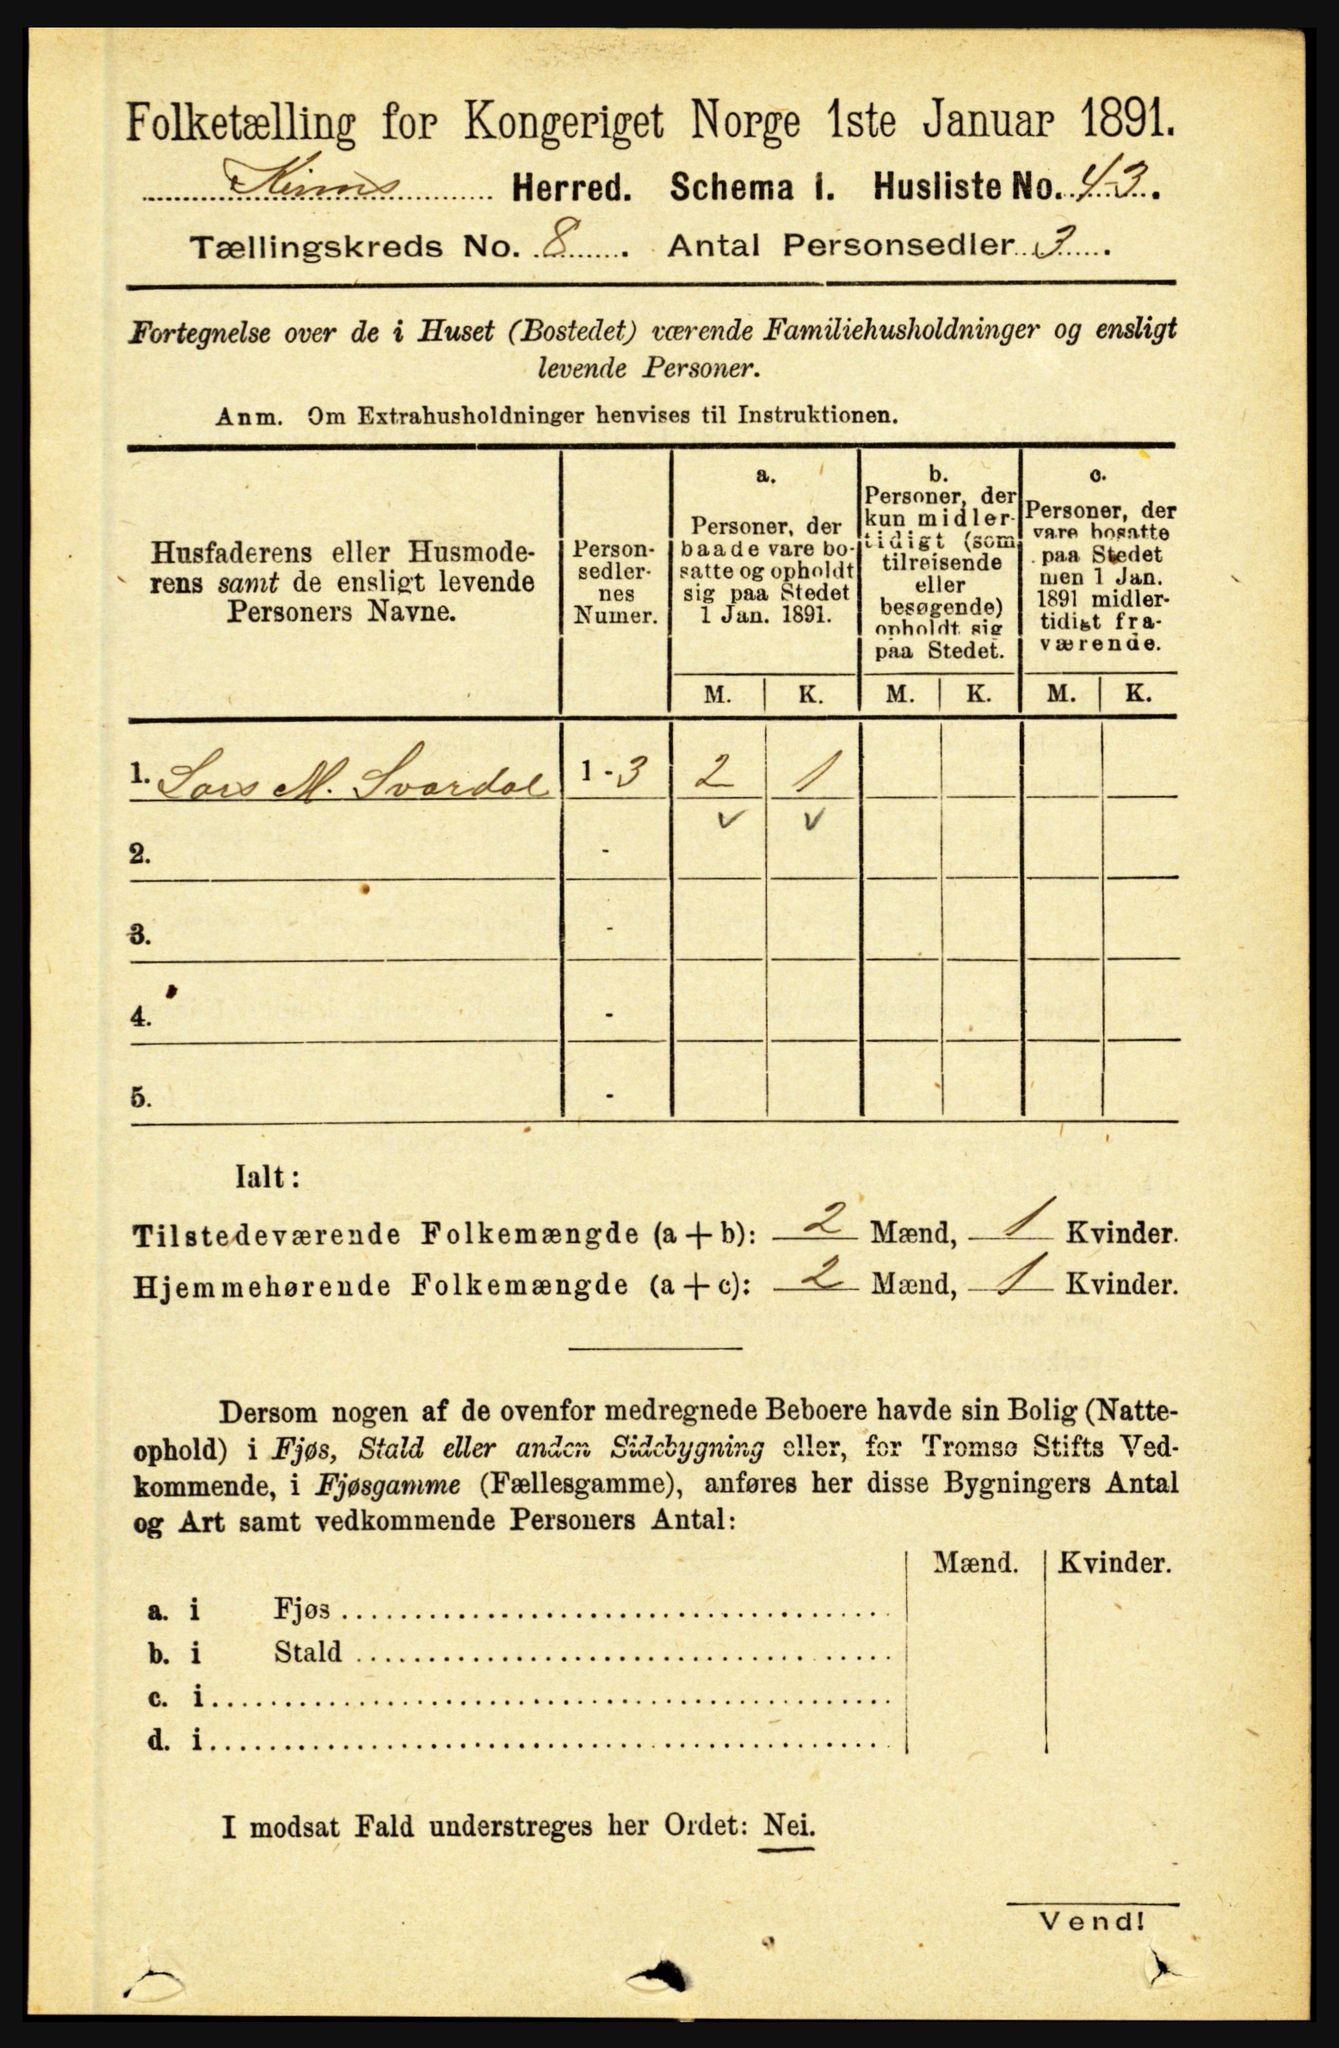 Folketælling for Kongeriget Norge 1ste Januar 1891.
Kinns Herred. Schema 1. Husliste No. 43.
Tællingskreds No. 8. Antal Personsedler 3.
Fortegnelse over de i Huset (Bostedet) værende Familiehusholdninger og ensligt
levende Personer.
Anm. Om Extrahusholdninger henvises til Instruktionen.
Husfaderens eller Husmode-
rens samt de ensligt levende
Personers Navne.
Person-
sedler-
nes
Numer.
a.
Personer, der
baade vare bo-
satte og opholdt
sig paa Stedet
1 Jan. 1891.
b.
Personer, der
kun midler-
tidigt (som
tilreisende
eller
besøgende)
opholdt sig
paa Stedet.
c.
Personer, der
vare bosatte
paa Stedet
men 1 Jan.
1891 midler-
tidigt fra-
værende.
M. K. M. K. M. K.
1. Lars M. Svardal 1-3 2 1
v v
2. -
3. -
4. -
5. -
Ialt:
Tilstedeværende Folkemængde (a + b): 2 Mænd, 1 Kvinder.
Hjemmehørende Folkemængde (a + c): 2 Mænd, 1 Kvinder.
Dersom nogen af de ovenfor medregnede Beboere havde sin Bolig (Natte-
ophold) i Fjøs, Stald eller anden Sidebygning eller, for Tromsø Stifts Ved-
kommende, i Fjøsgamme (Fællesgamme), anføres her disse Bygningers Antal
og Art samt vedkommende Personers Antal:
Mænd. Kvinder.
a. i Fjøs
b. i Stald
c. i
d. i
I modsat Fald understreges her Ordet: Nei.
Vend!